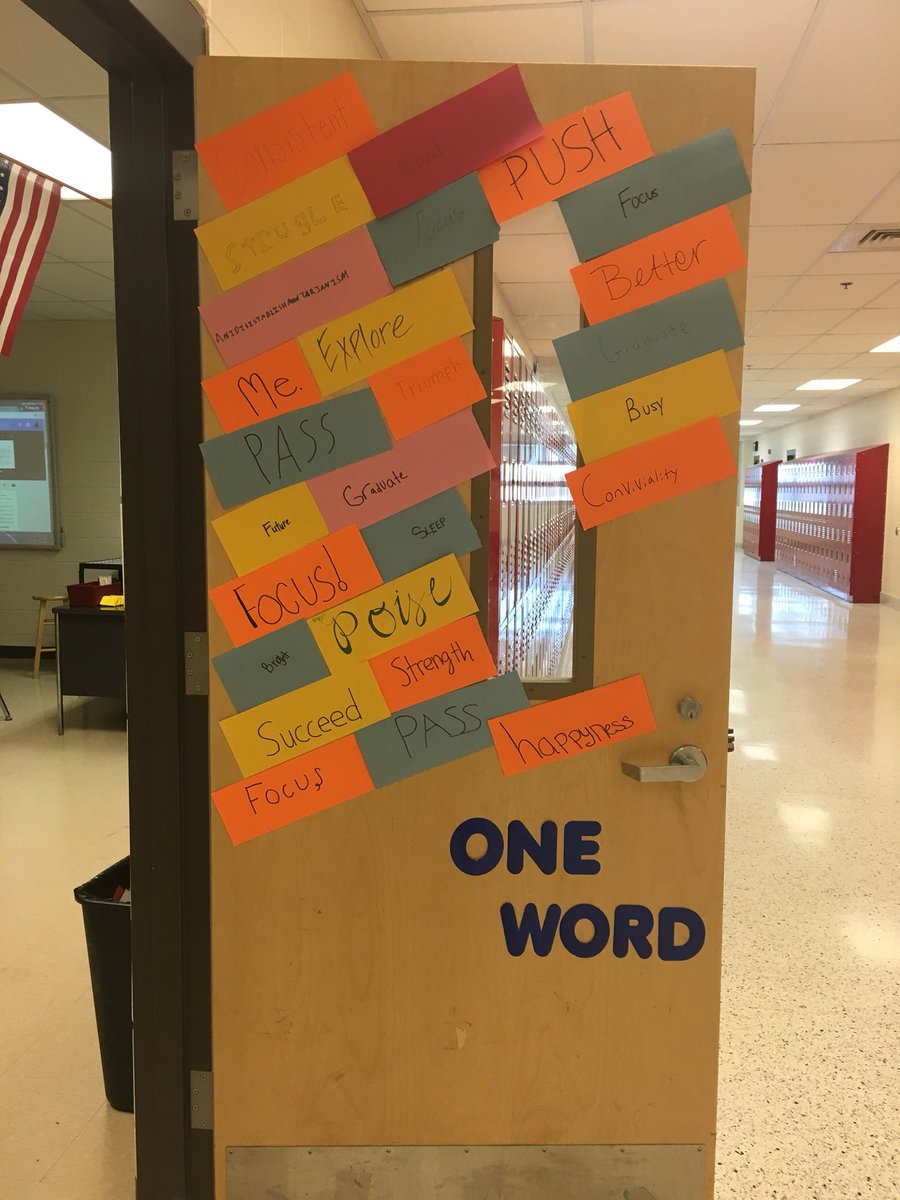 Consistent
Good
PUSH
Strugle
Focus
Focus
ANIDISESTABLISHANTARIANISM
Explore
Better
Me.
Triumph
Graduate
PASS
Busy
Graduate
Conviviality
Future
SLEEP
FOCUS!
Poise
Bright
Strength
Succeed
PASS
happyness
Focus
ONE
WORD